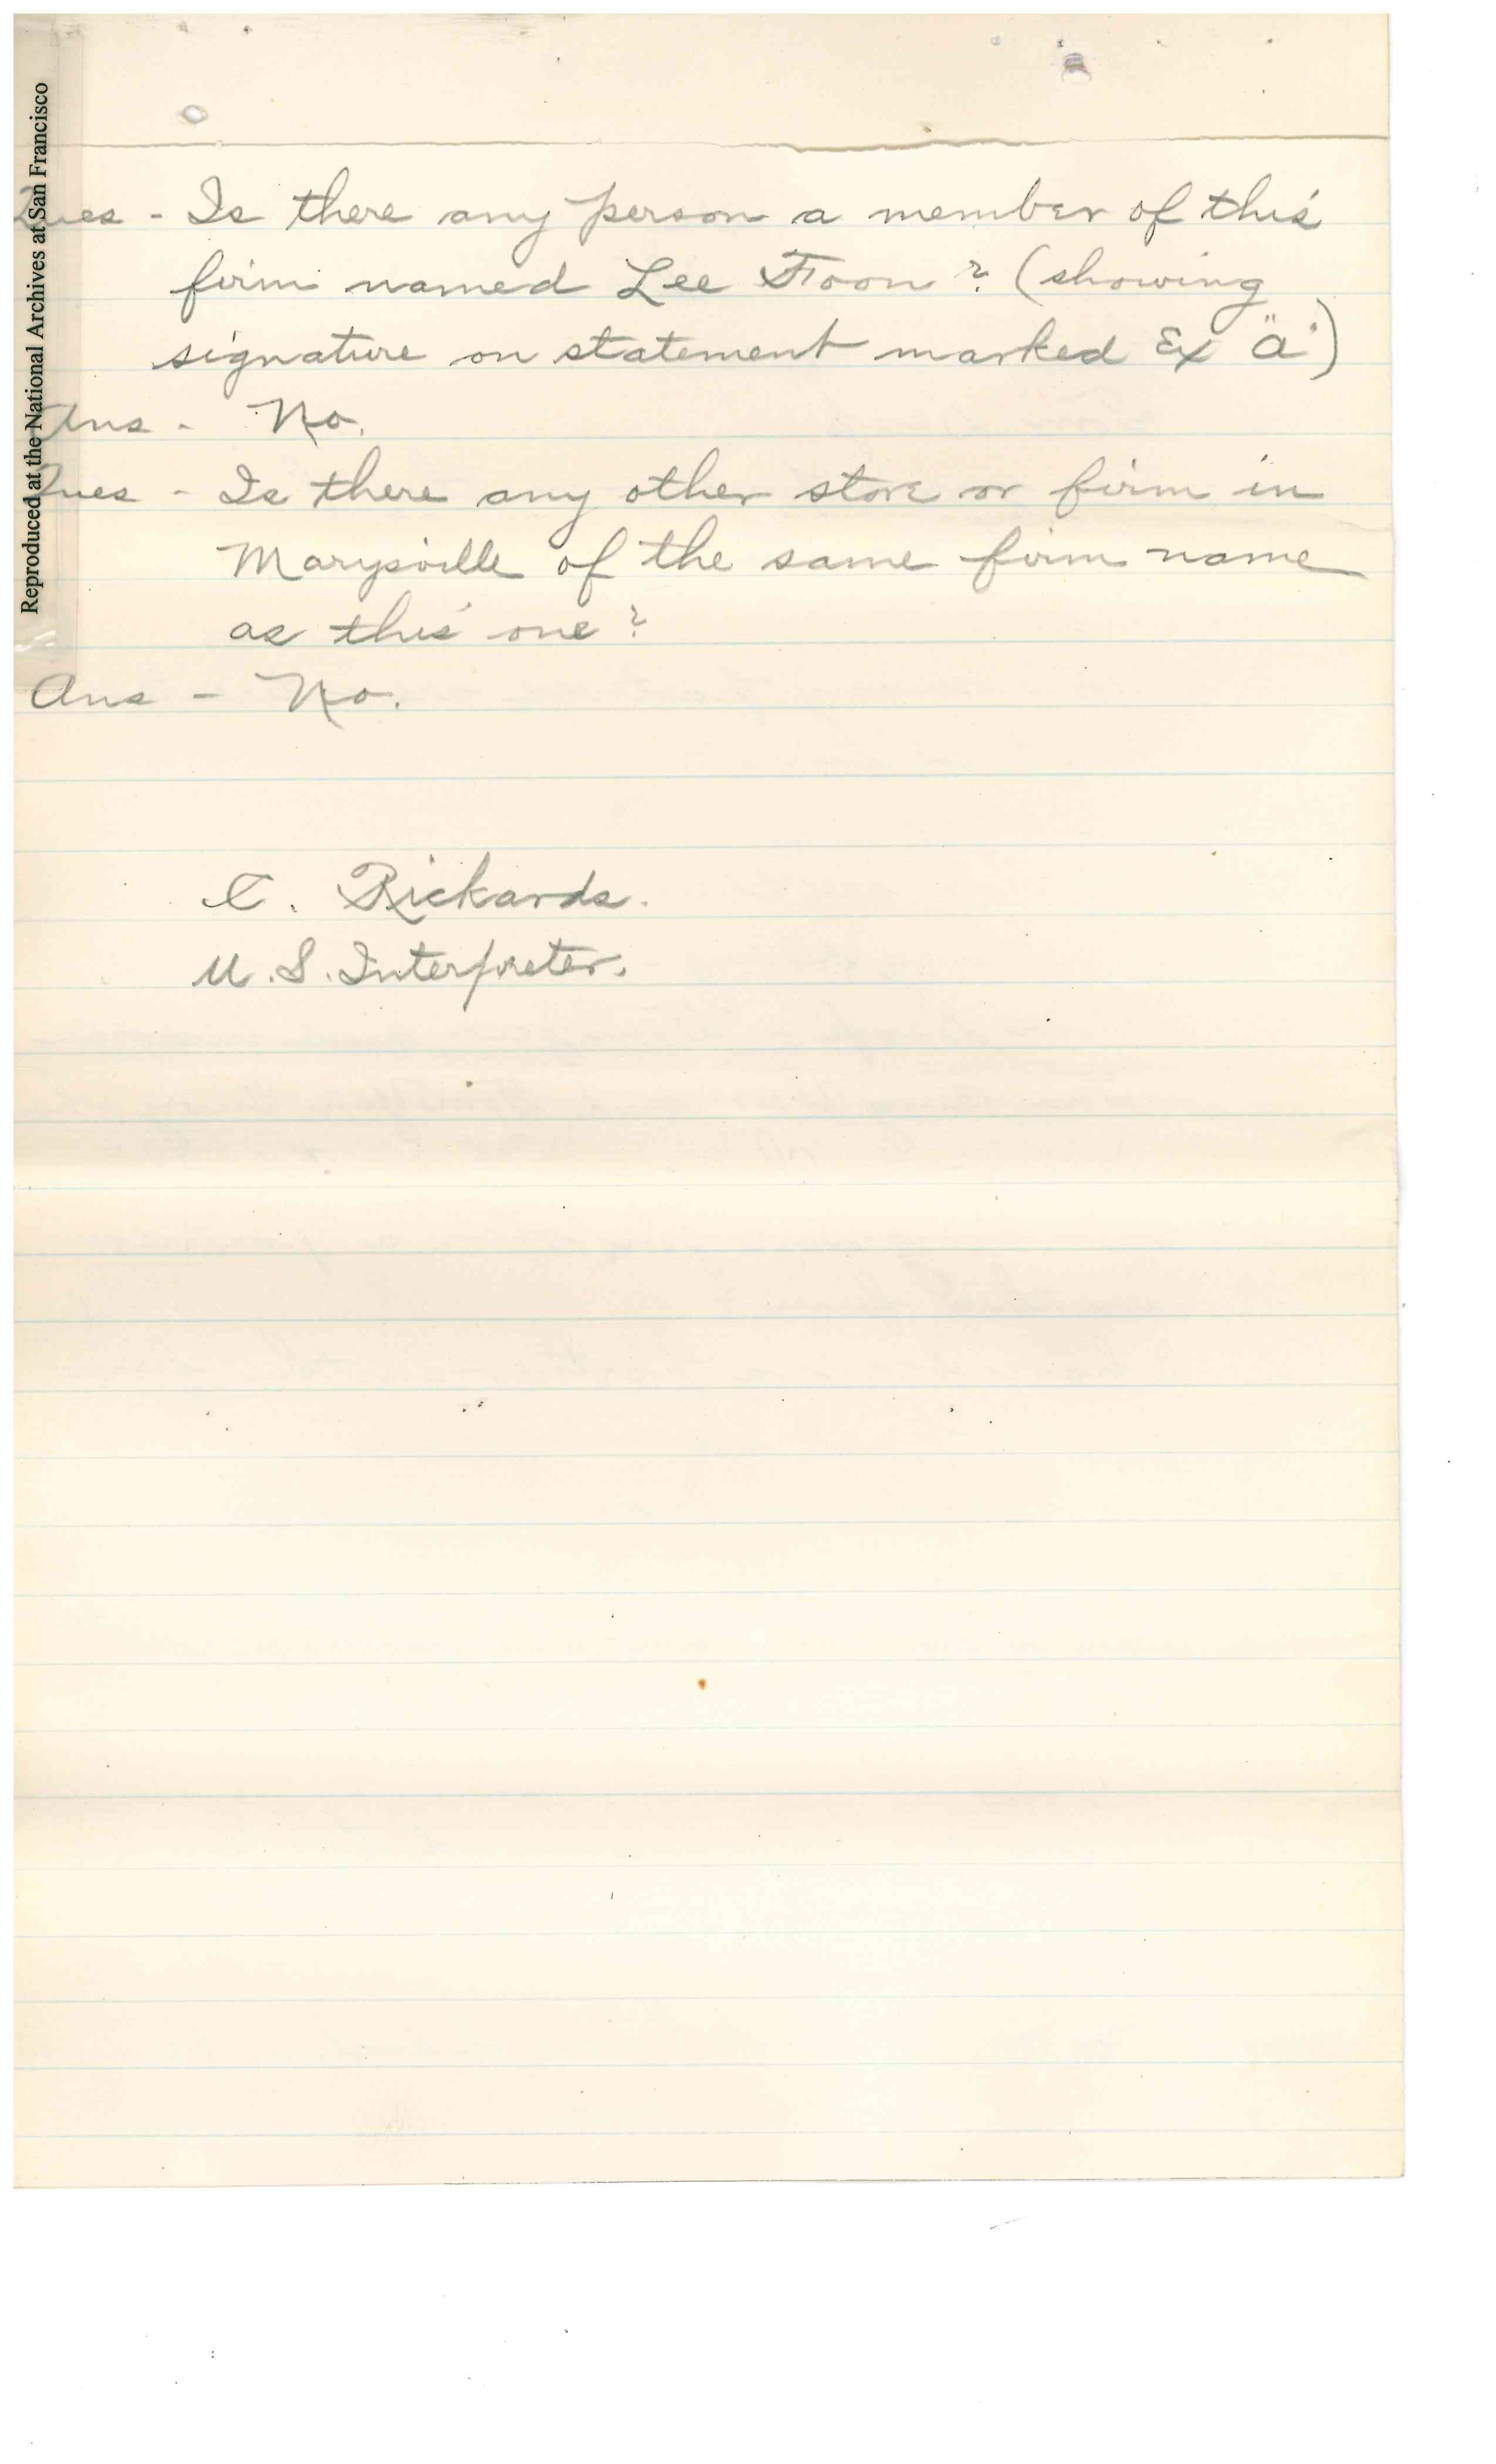 Reproduced at the National Archives at San Francisco
Ques - Is there any person a member of this
firm named Lee Foon? (showing
signature on statement marked Ex "a")
Ans - No.
Ques - Is there any other store or firm in
Marysville of the same firm name
as this one?
Ans - No.
C. Rickards.
U.S. Interpreter.